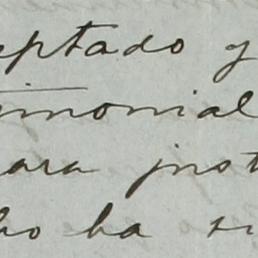 eptado y
timonial
para just
ho ha si